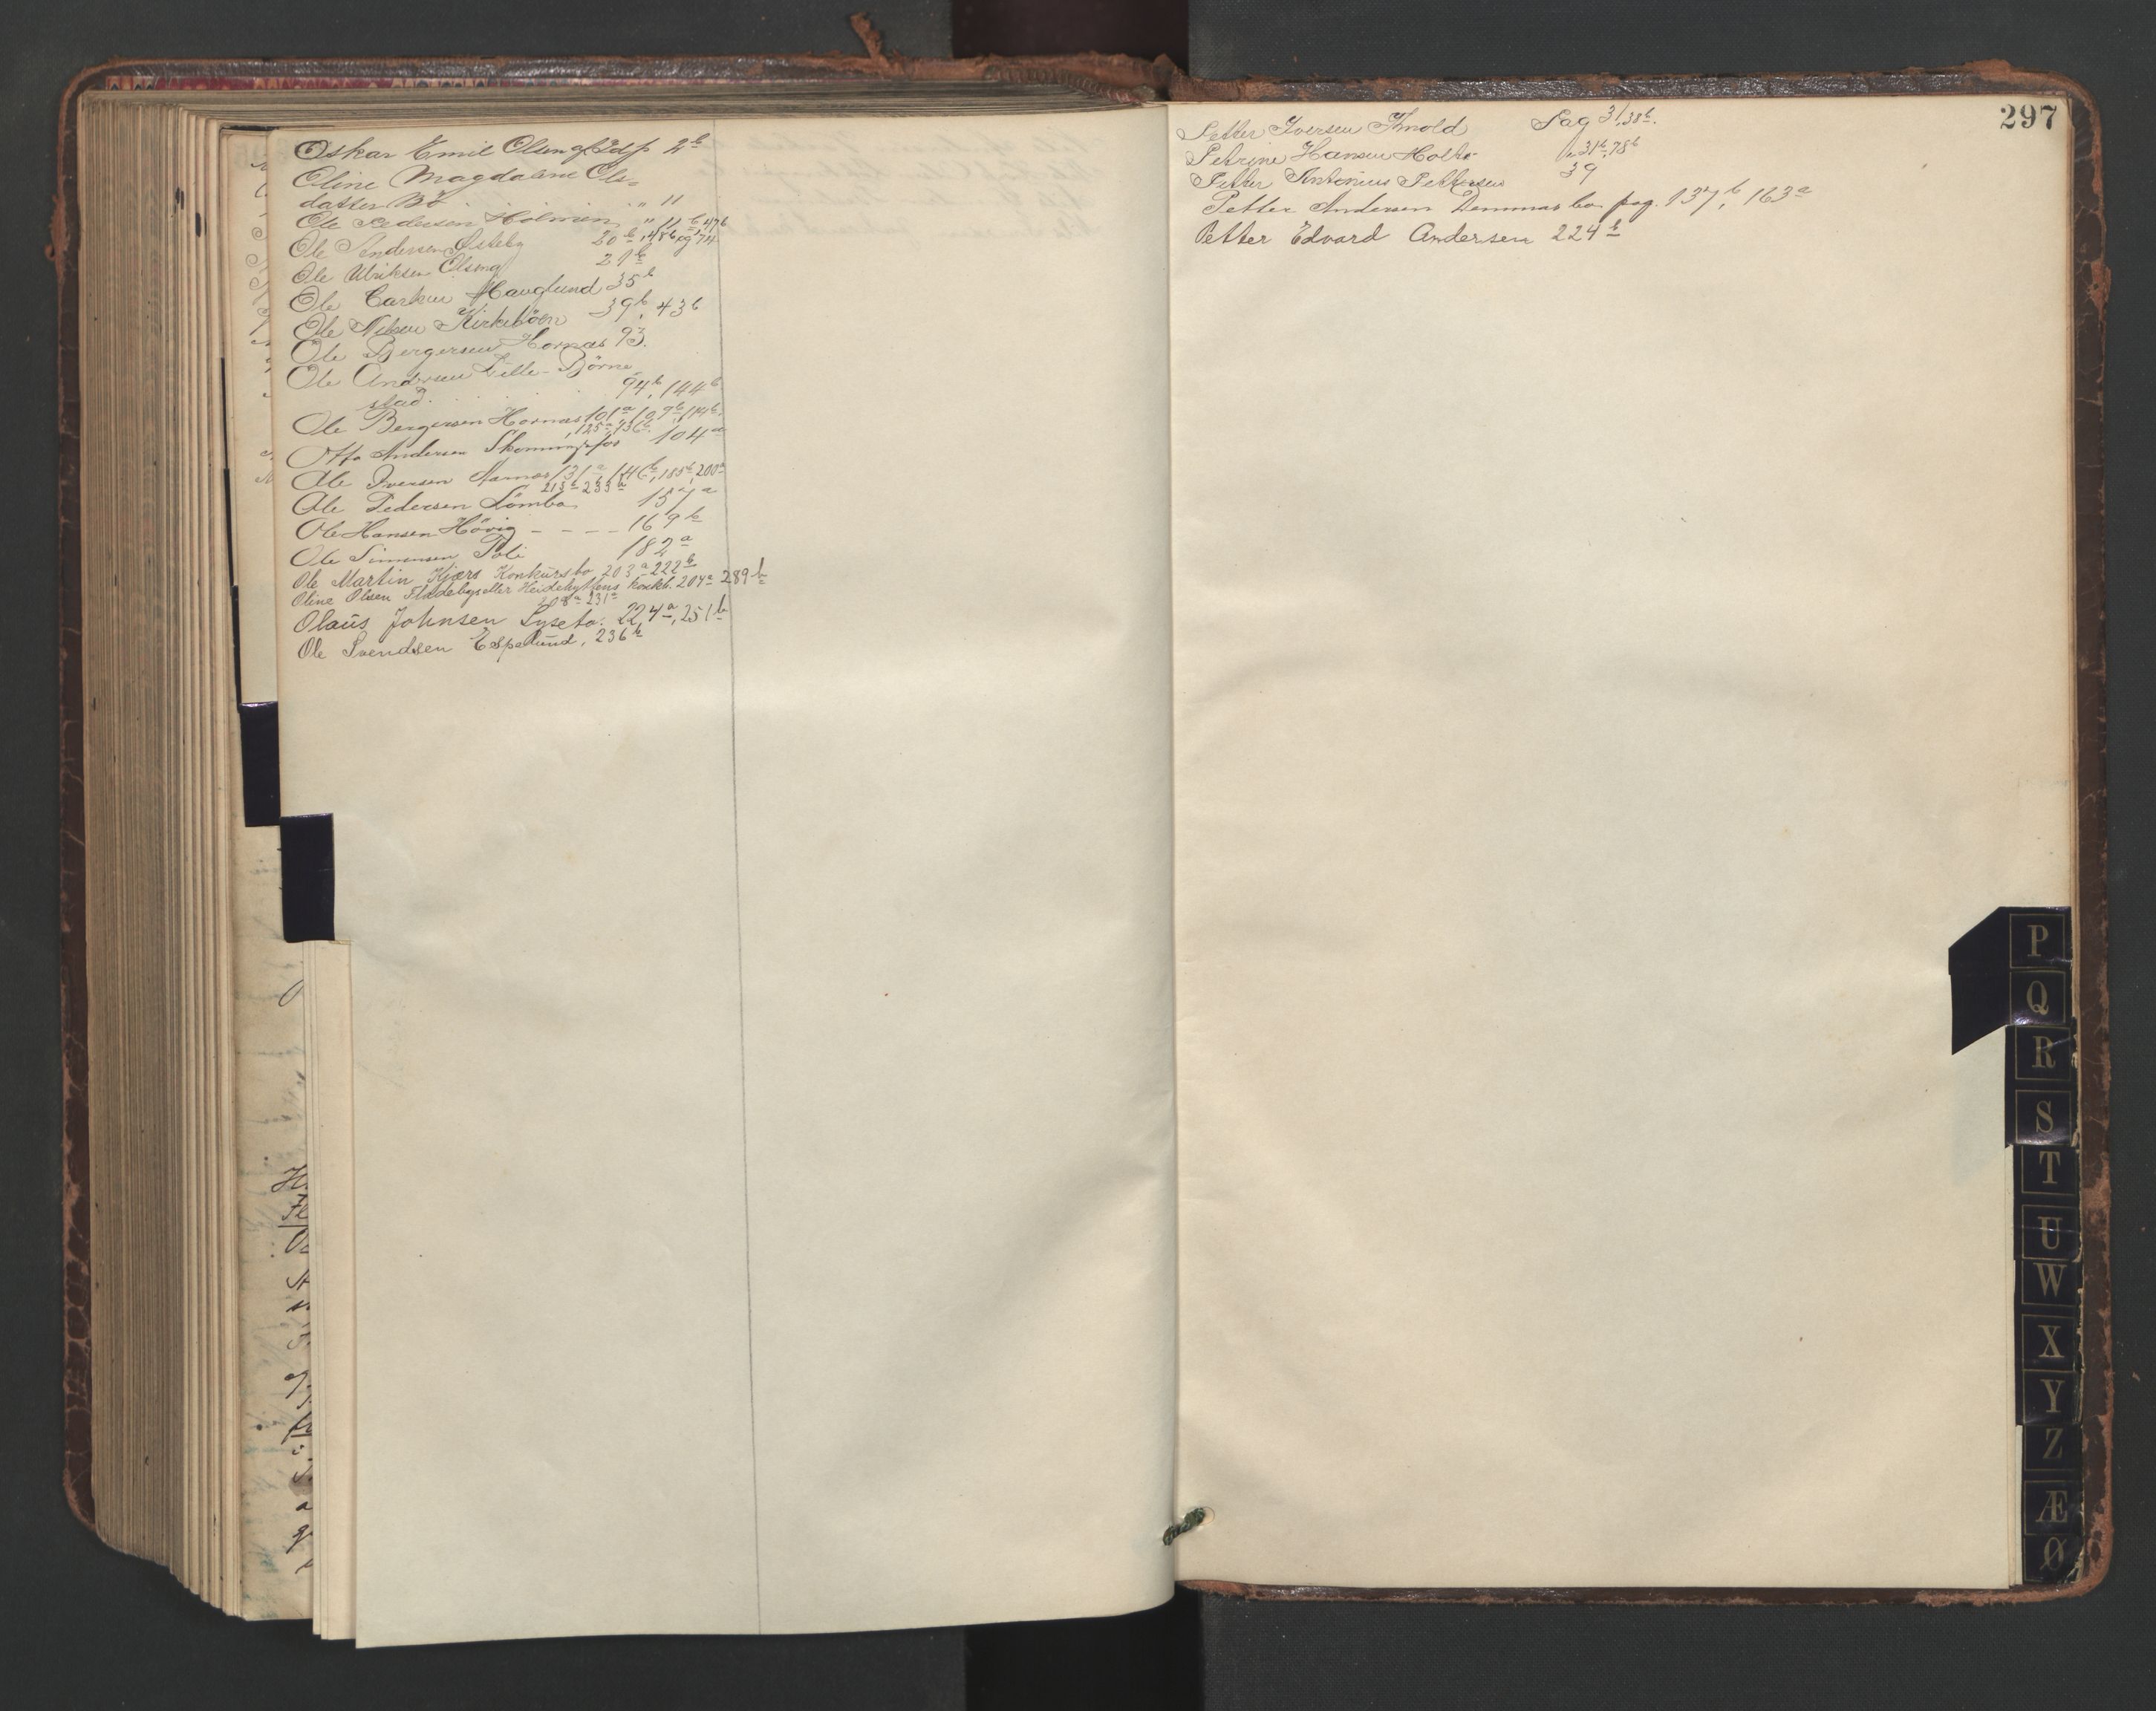 Oskar Emil Olsen 2b
Oline Magdalene Ols-
datter Bö " 11
Ole Pedersen Holmen " 12b, 47b
Ole Andersen Østeby 20b, 48b og 74
Ole Ulriksen Olseng 21b
Ole Hauglund 35b
Ole Nilsen Kirkeböen 39b, 43b
Ole Bergersen Hornæs 93.
Ole Andersen Lille-Börne
stad. 94b, 144b
Ole Bergersen Hornæs 101a, 109b, 114b,
125a, 136b.
Otto Andersen Skonningsfos 104a
Ole Iversen Aarnæs 131a, 146b, 185b, 200a
213b 233a
Ole Pedersen Lömbo 157a
Ole Hansen Hövig - - - - 169b
Ole Simensen Poli 182a
Ole Martin Kjærs Konkursbo 203a 222b
Oline Olsen Fladebys eller Heidehyttens konkb. 204a 289b
208a 231a
Olaüs Johnsen Lyseto. 224a, 251b
Ole Svendsen Espelünd, 236b
297
Petter Iversen Knold Pag 31, 38b.
Petrine Hansen Holte " 31b, 78b
Petter Antonius Pettersen 39
Petter Andersen Dammas bo pag. 137b, 163a
Petter Edvard Andersen 224b
P
Q
R
S
T
U
W
X
Y
Z
Æ
Ø